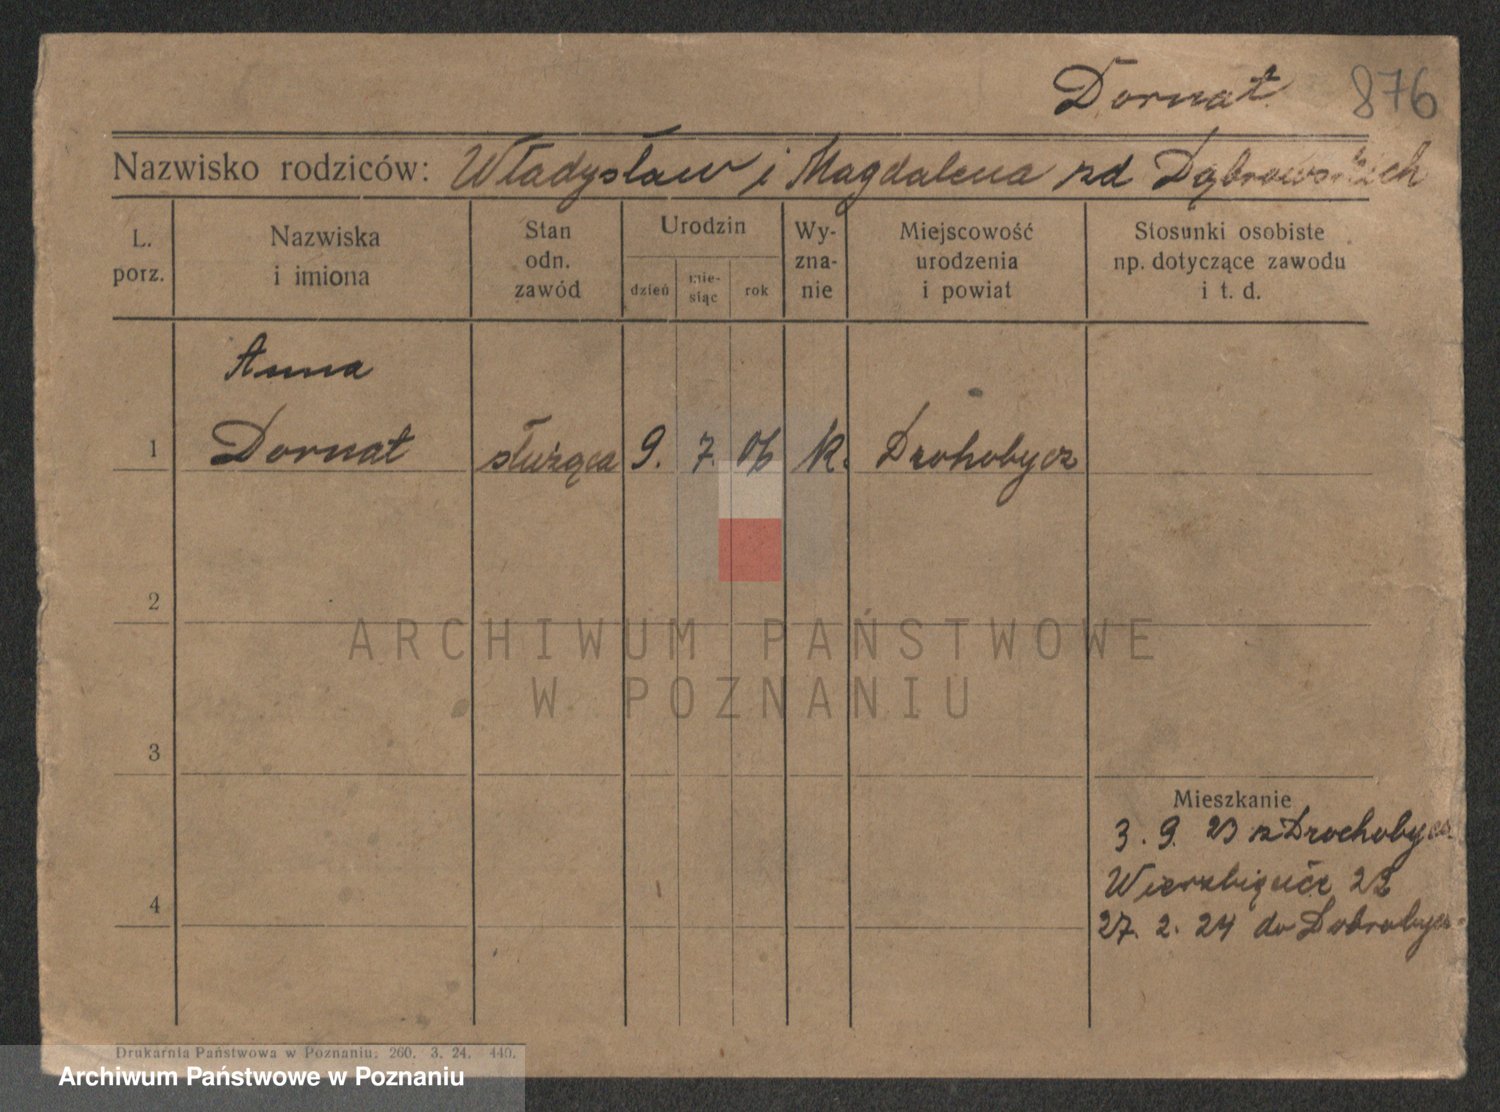 Dornat 876
Nazwisko rodziców: Władysław i Magdalena zd Dąbrowskich
L. porz.
Nazwiska i imiona
Stan odn. zawód
Urodzin
dzień
mie-siąc
rok
Wy-zna-nie
Miejscowość urodzenia i powiat
Stosunki osobiste np. dotyczące zawodu i t. d.
Anna
1 Dornat służąca 9. 7. 06 k. Drohobycz
2
ARCHIWUM PAŃSTWOWE
W POZNANIU
3
Mieszkanie
3. 9. 23 z Drochobycz
Wierzbięcice 22
4
27. 2. 24 do Dobrobycz
Drukarnia Państwowa w Poznaniu. 260. 3. 24. 440.
Archiwum Państwowe w Poznaniu